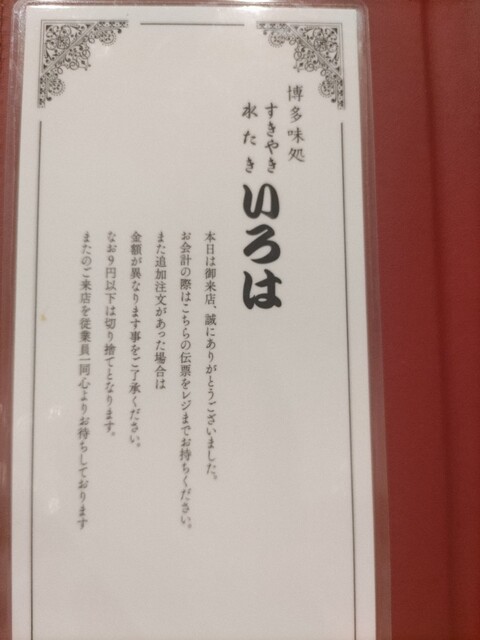 博多味処
すきやき
水たき
いろは
本日は御来店、誠にありがとうございました。
お会計の際はこちらの伝票をレジまでお持ちください。
また追加注文があった場合は
金額が異なります事をご了承ください。
なお9円以下は切り捨てとなります。
またのご来店を従業員一同心よりお待ちしております